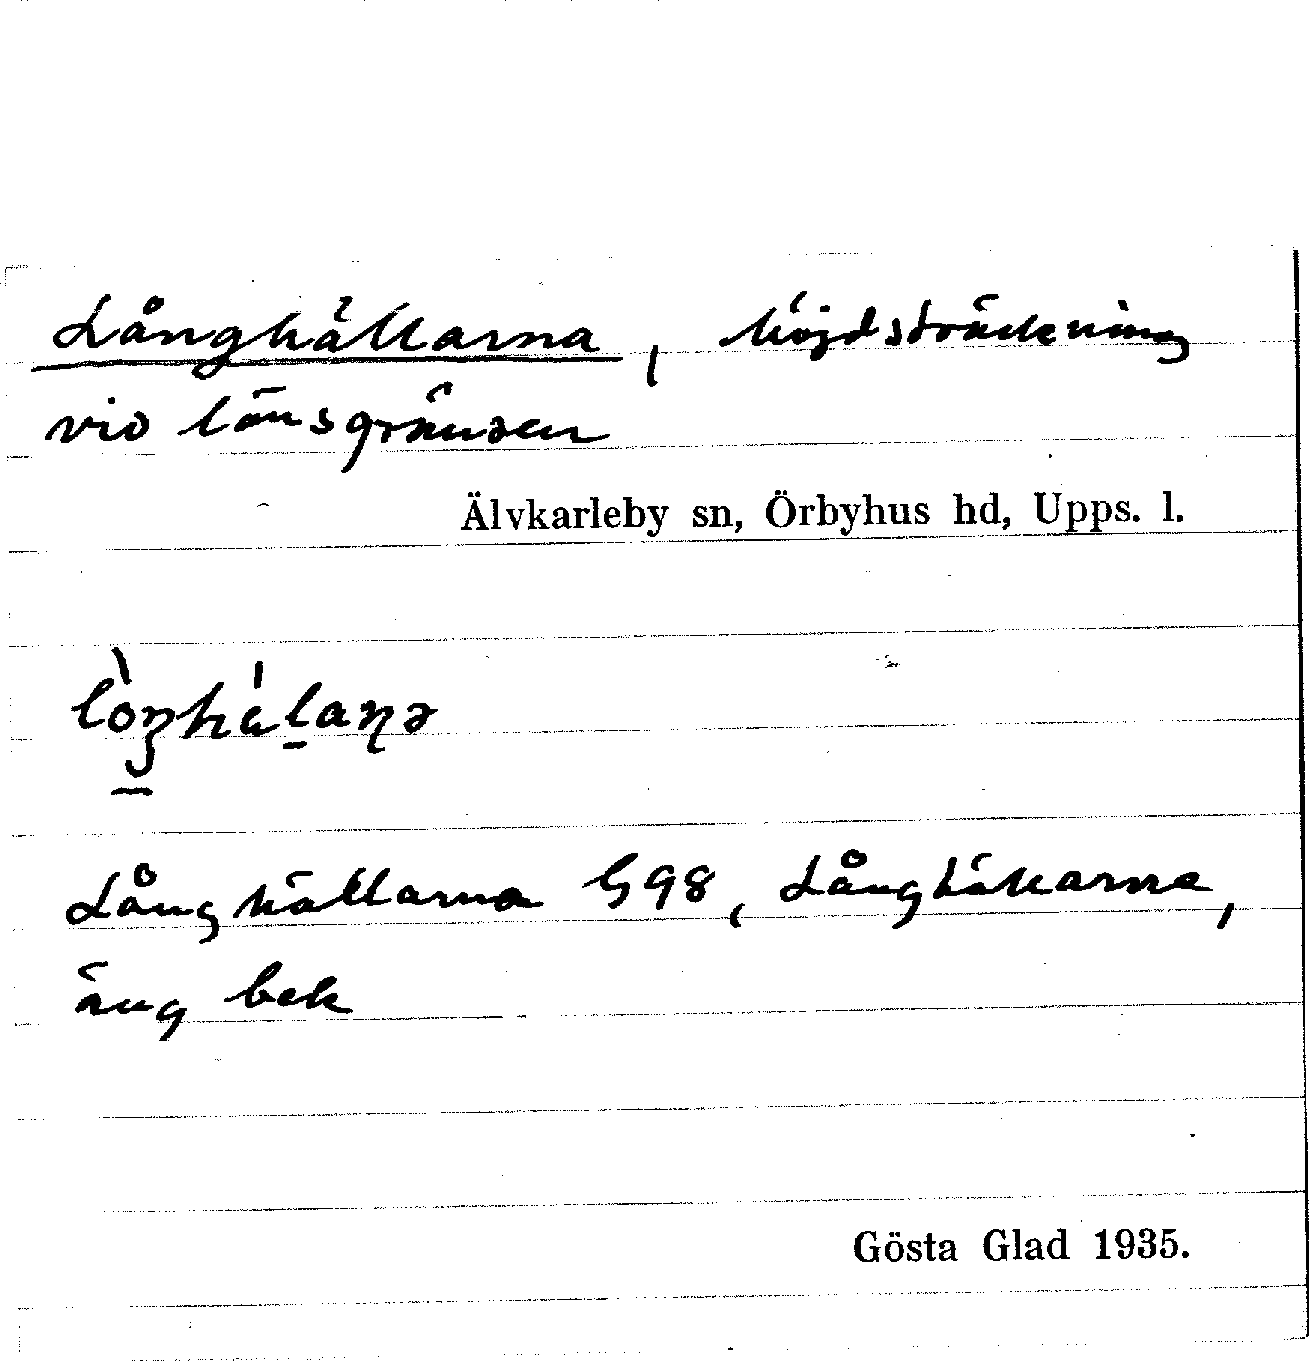 Långhällarna, höjdsträckning
vid länsgränsen
Älvkarleby sn, Örbyhus hd, Upps. l.
Långhällarna G98, Långhällarna,
äng bek
Gösta Glad 1935.